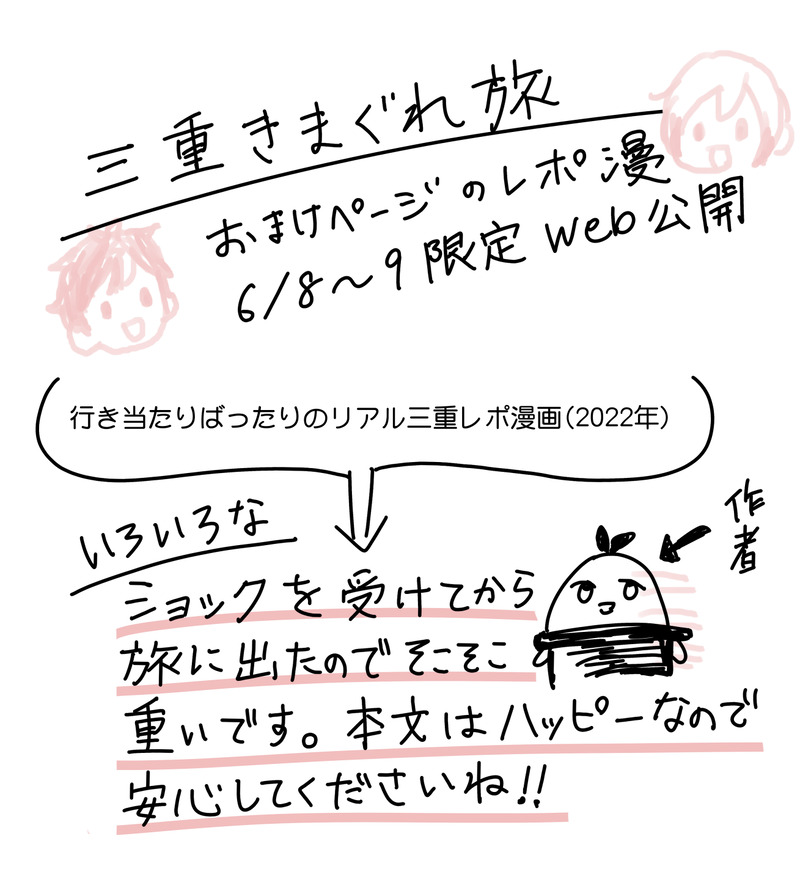 三重きまぐれ旅
おまけページのレポ漫
6/8～9限定Web公開
行き当たりばったりのリアル三重レポ漫画(2022年)
いろいろな
作者
ショックを受けてから
旅に出たのでそこそこ
重いです。本文はハッピーなので
安心してくださいね!!